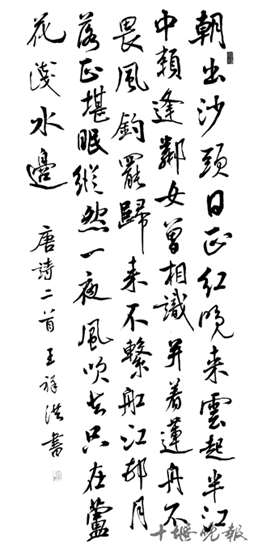 朝出沙頭日正紅晚来雲起半江
中賴逢鄰女曾相識并着蓮舟不
畏風釣罷歸来不繫船江邨月
落正堪眠縱然一夜風吹去只在蘆
花淺水邊
唐詩二首王祥洪書
十堰晚報